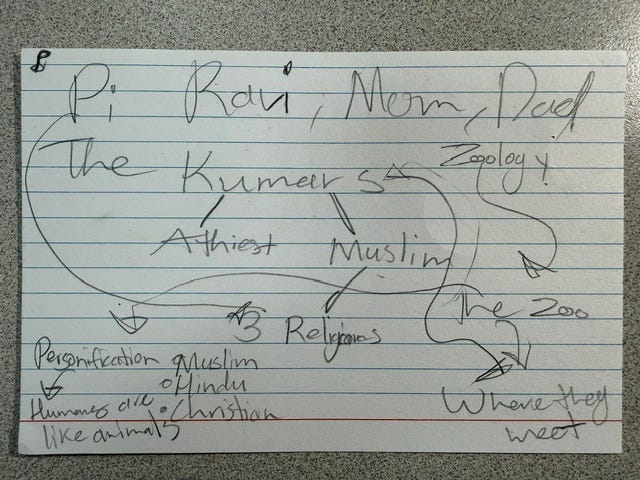 Pi Ravi, Mom, Dad
The Kumars
Zoology!
Athiest Muslim
The Zoo
3 Religions
Personification
Humans are
like animals
Muslim
Hindu
Christian
Where they
meet